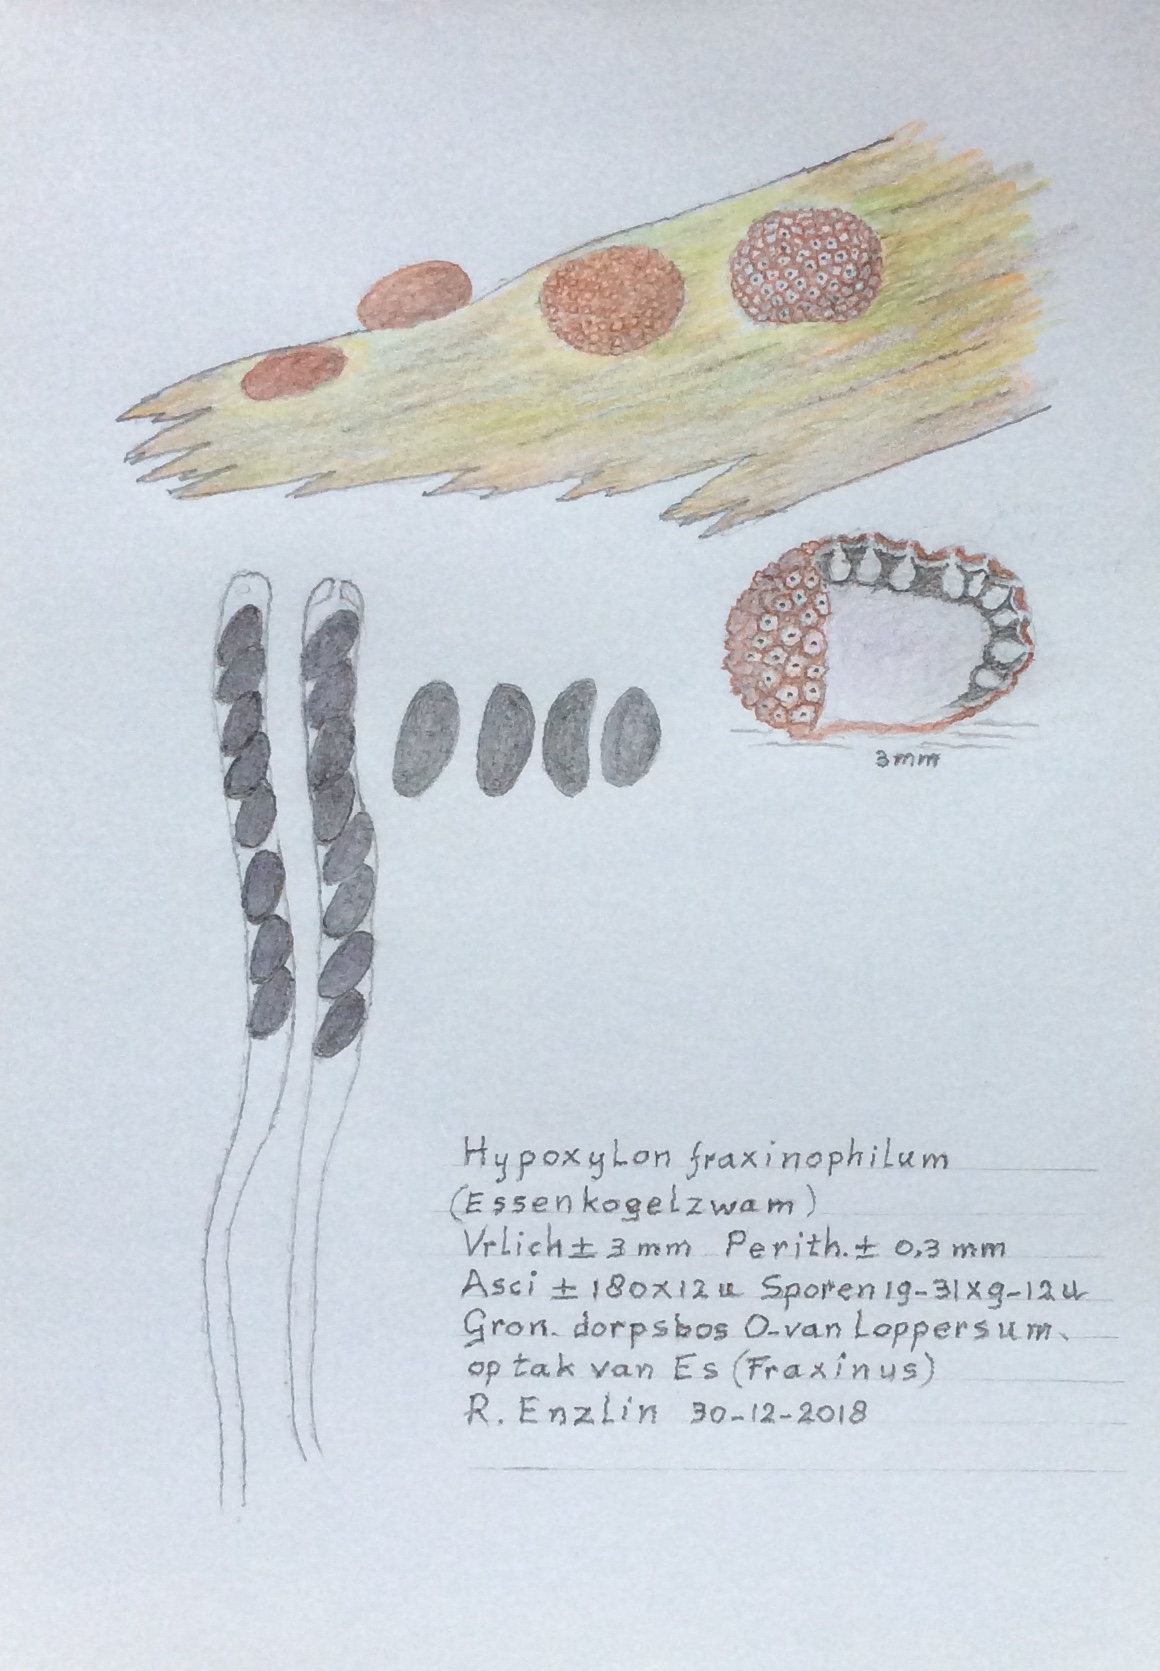 3mm
Hypoxylon fraxinophilum
(Essenkogelzwam)
Vrlich ± 3 mm Perith. ± 0,3 mm
Asci ± 180x12 u Sporen 19-31x9-12 u
Gron. dorpsbos O-van Loppersum.
op tak van Es (Fraxinus)
R. Enzlin 30-12-2018